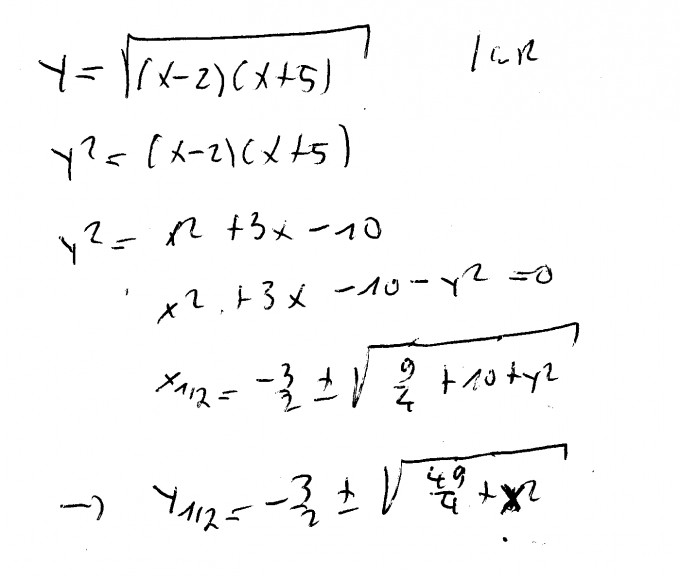 y = √((x-2)(x+5)) | (…)²
y² = (x-2)(x+5)
y² = x² + 3x - 10
x² + 3x - 10 - y² = 0
x₁/₂ = -3/2 ± √(9/4 + 10 + y²)
→ y₁/₂ = -3/2 ± √(49/4 + x²)